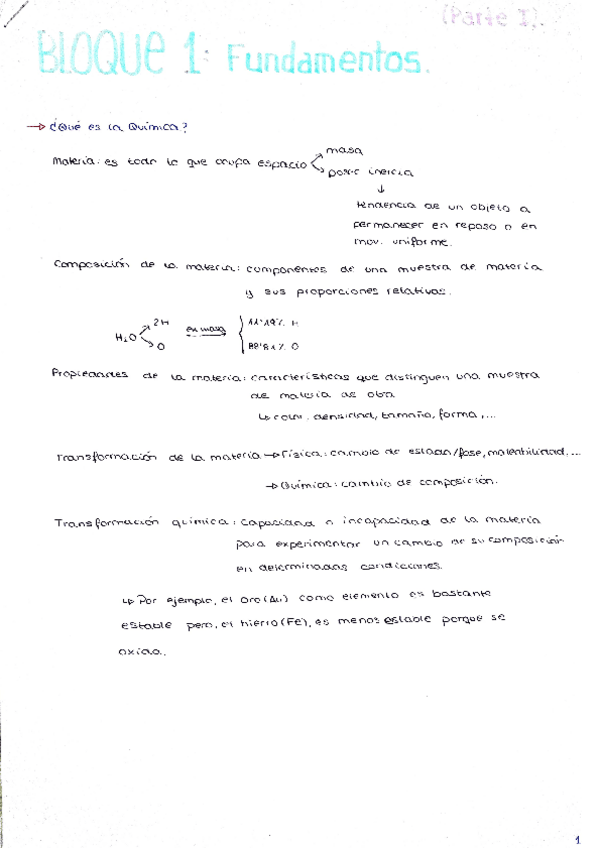 (Parte I).
BLOQUE 1: Fundamentos.
→ ¿Qué es la Química?
Materia: es todo lo que ocupa espacio
masa
posee inercia
↓
tendencia de un objeto a
permanecer en reposo o en
mov. uniforme.
Composición de la materia: componentes de una muestra de materia
y sus proporciones relativas.
H₂O
2H
O
en masa
11'19% H
88'81% O
Propiedades de la materia: características que distinguen una muestra
de materia de otra
↳ color, densidad, tamaño, forma,...
Transformación de la materia → Física: cambio de estado/fase, maleabilidad...
→ Química: cambio de composición.
Transformación química: capacidad o incapacidad de la materia
para experimentar un cambio de su composición
en determinadas condiciones.
↳ Por ejemplo, el oro (Au) como elemento es bastante
estable pero, el hierro (Fe), es menos estable porque se
oxida.
1